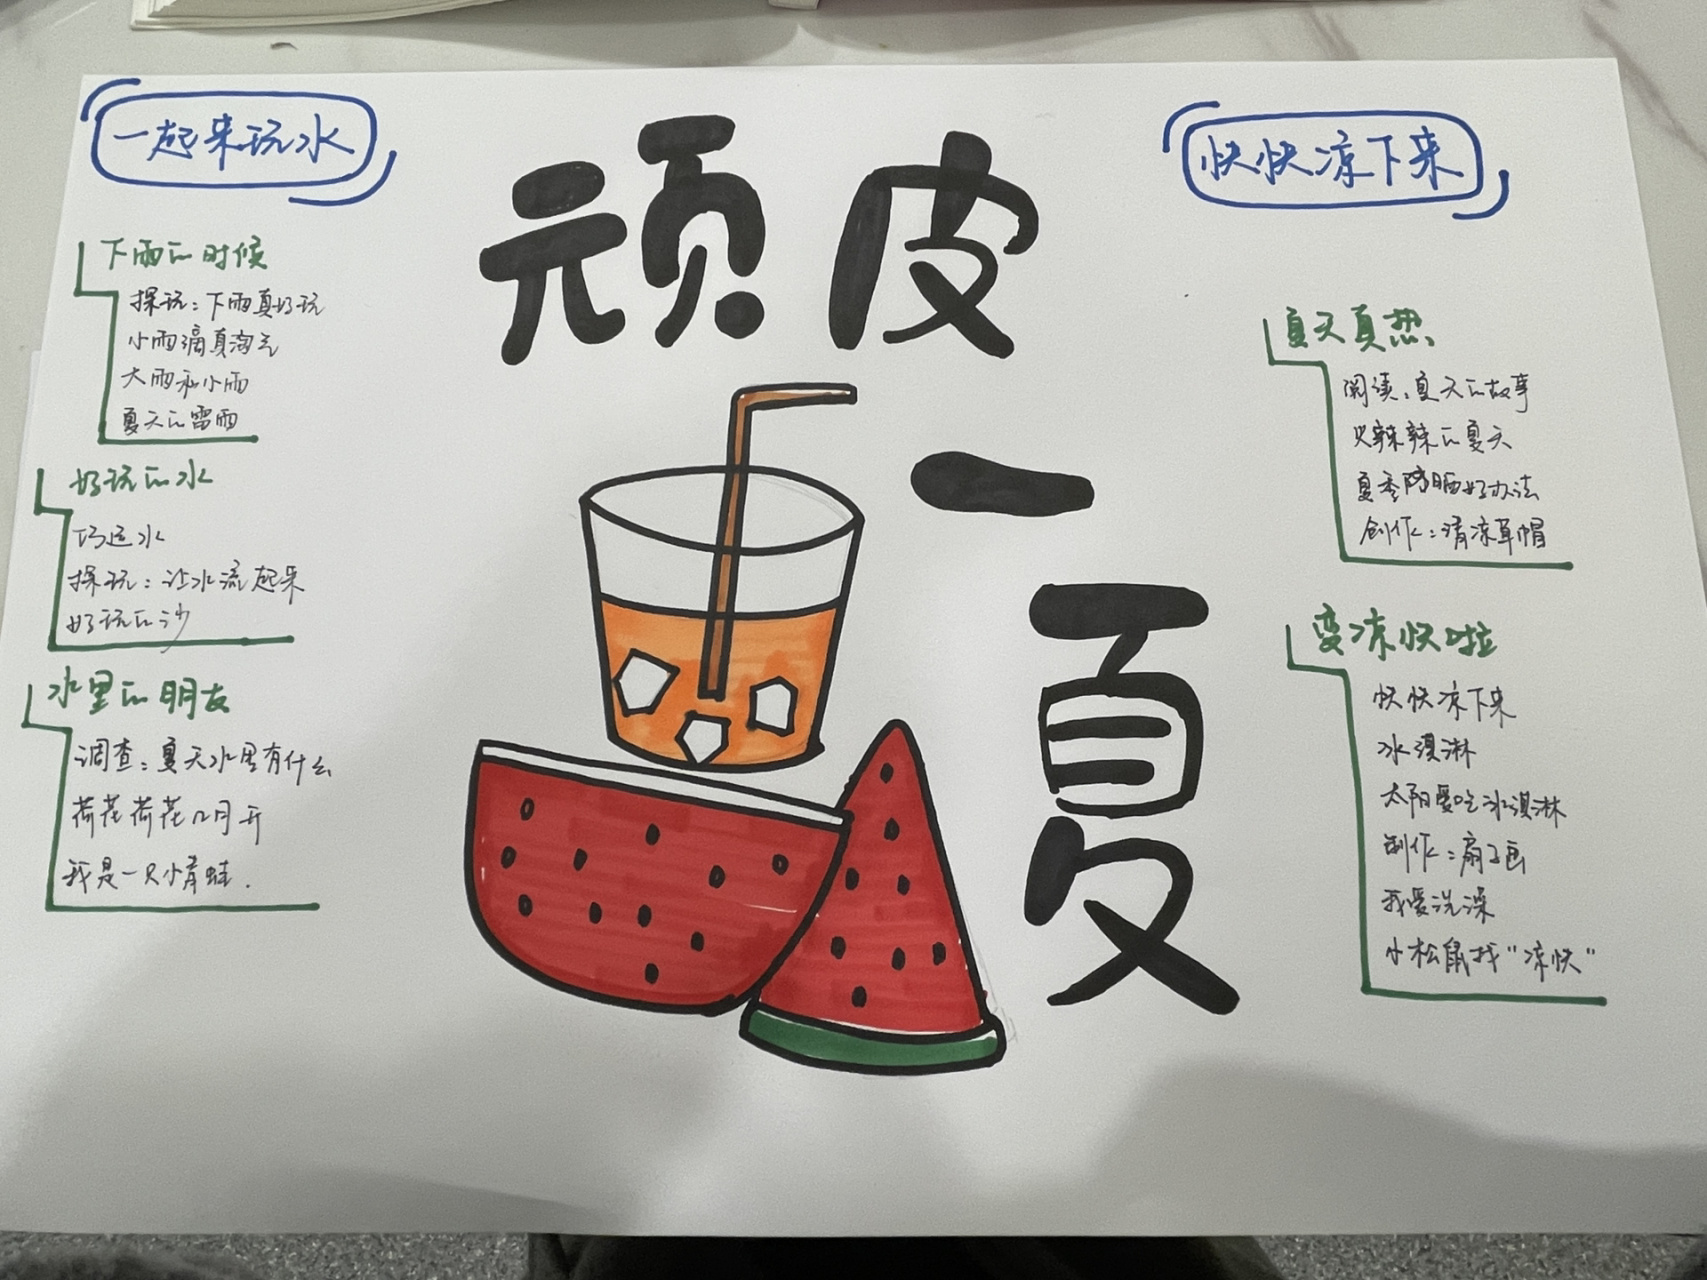 一起来玩水
下雨的时候
探玩：下雨真好玩
小雨滴真淘气
大雨和小雨
夏天的雷雨
好玩的水
巧运水
探玩：让水流起来
好玩的沙
水里的朋友
调查：夏天水里有什么
荷花荷花几月开
我是一只小青蛙.
顽皮
一
夏
快快凉下来
夏天真热
阅读：夏天的故事
火辣辣的夏天
夏季防晒好办法
创作：清凉草帽
变凉快啦
快快凉下来
冰淇淋
太阳爱吃冰淇淋
制作：扇子画
我爱洗澡
小松鼠找“凉快”